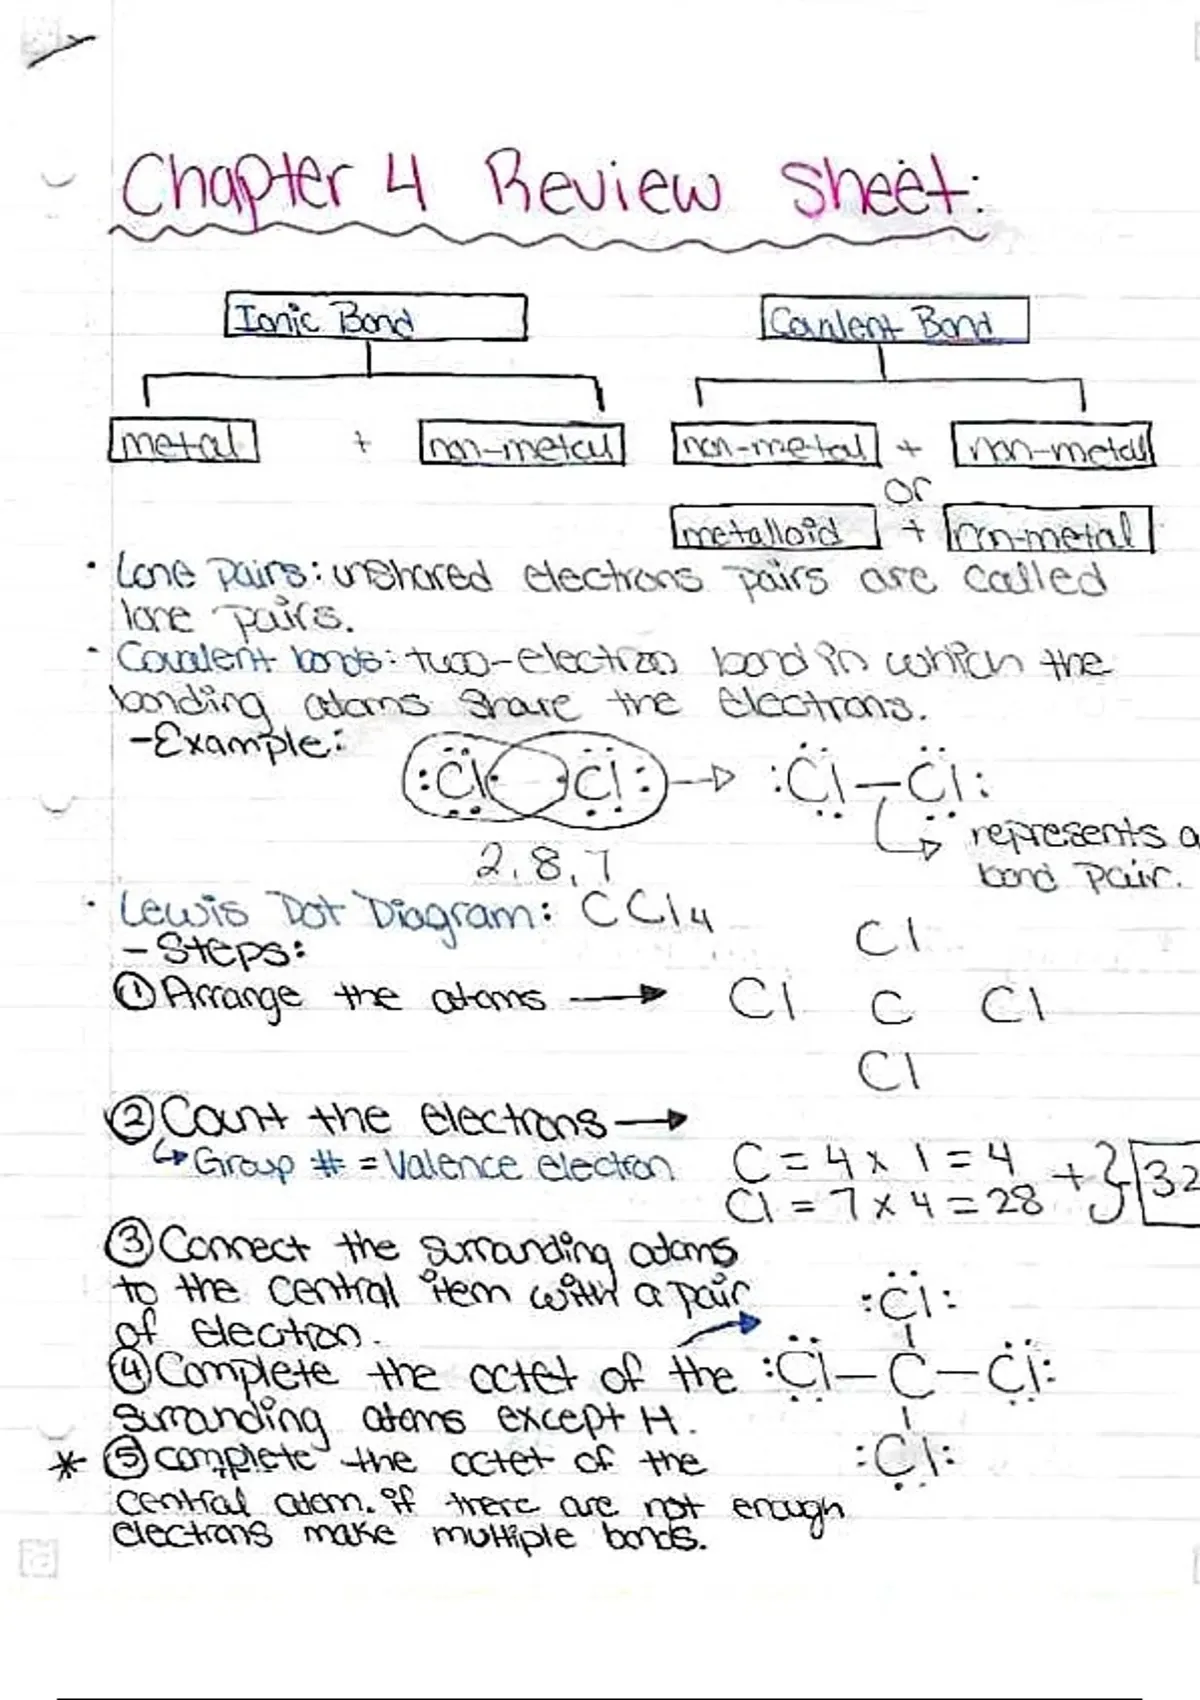 Chapter 4 Review Sheet:
Ionic Bond
Covalent Bond
metal + non-metal
non-metal + non-metal
or
metalloid + non-metal
• Lone pairs: unshared electrons pairs are called
lone pairs.
• Covalent bonds: two-electron bond in which the
bonding atoms share the electrons.
-Example:
:Cl Cl: → :Cl—Cl:
represents a
bond pair.
2, 8, 7
• Lewis Dot Diagram: CCl4
- Steps:
① Arrange the atoms →
Cl
Cl C Cl
Cl
② Count the electrons →
↳ Group # = Valence electron
C = 4 x 1 = 4
Cl = 7 x 4 = 28 + } 32
③ Connect the surrounding atoms
to the central item with a pair
of electron.
④ Complete the octet of the
surrounding atoms except H.
:Cl:
:Cl—C—Cl:
:Cl:
* ⑤ complete the octet of the
central atom. if there are not enough
electrons make multiple bonds.